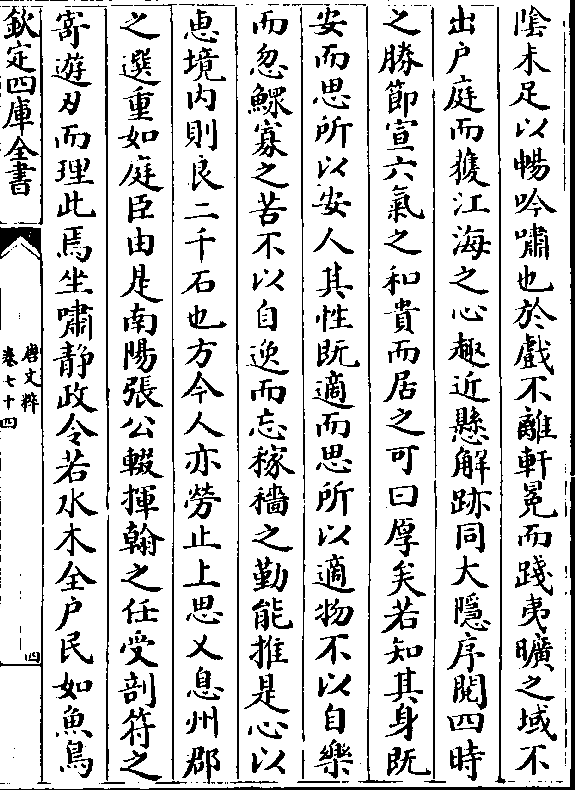 陰未足以暢吟嘯也於戲不離軒冕而踐夷曠之域不
出户庭而獲江海之心趣近懸解跡同大隱序閱四時
之勝節宣六氣之和貴而居之可曰厚矣若知其身既
安而思所以安人其性既適而思所以適物不以自樂
而忽鰥寡之苦不以自逸而忘稼穡之勤能推是心以
惠境内則良二千石也方今人亦勞止上思乂息州郡
之選重如庭臣由是南陽張公輟揮翰之任受剖符之
寄遊刃而理此焉坐嘯静政令若水木全户民如魚鳥
欽定四庫全書
唐文粹
卷七十四
四